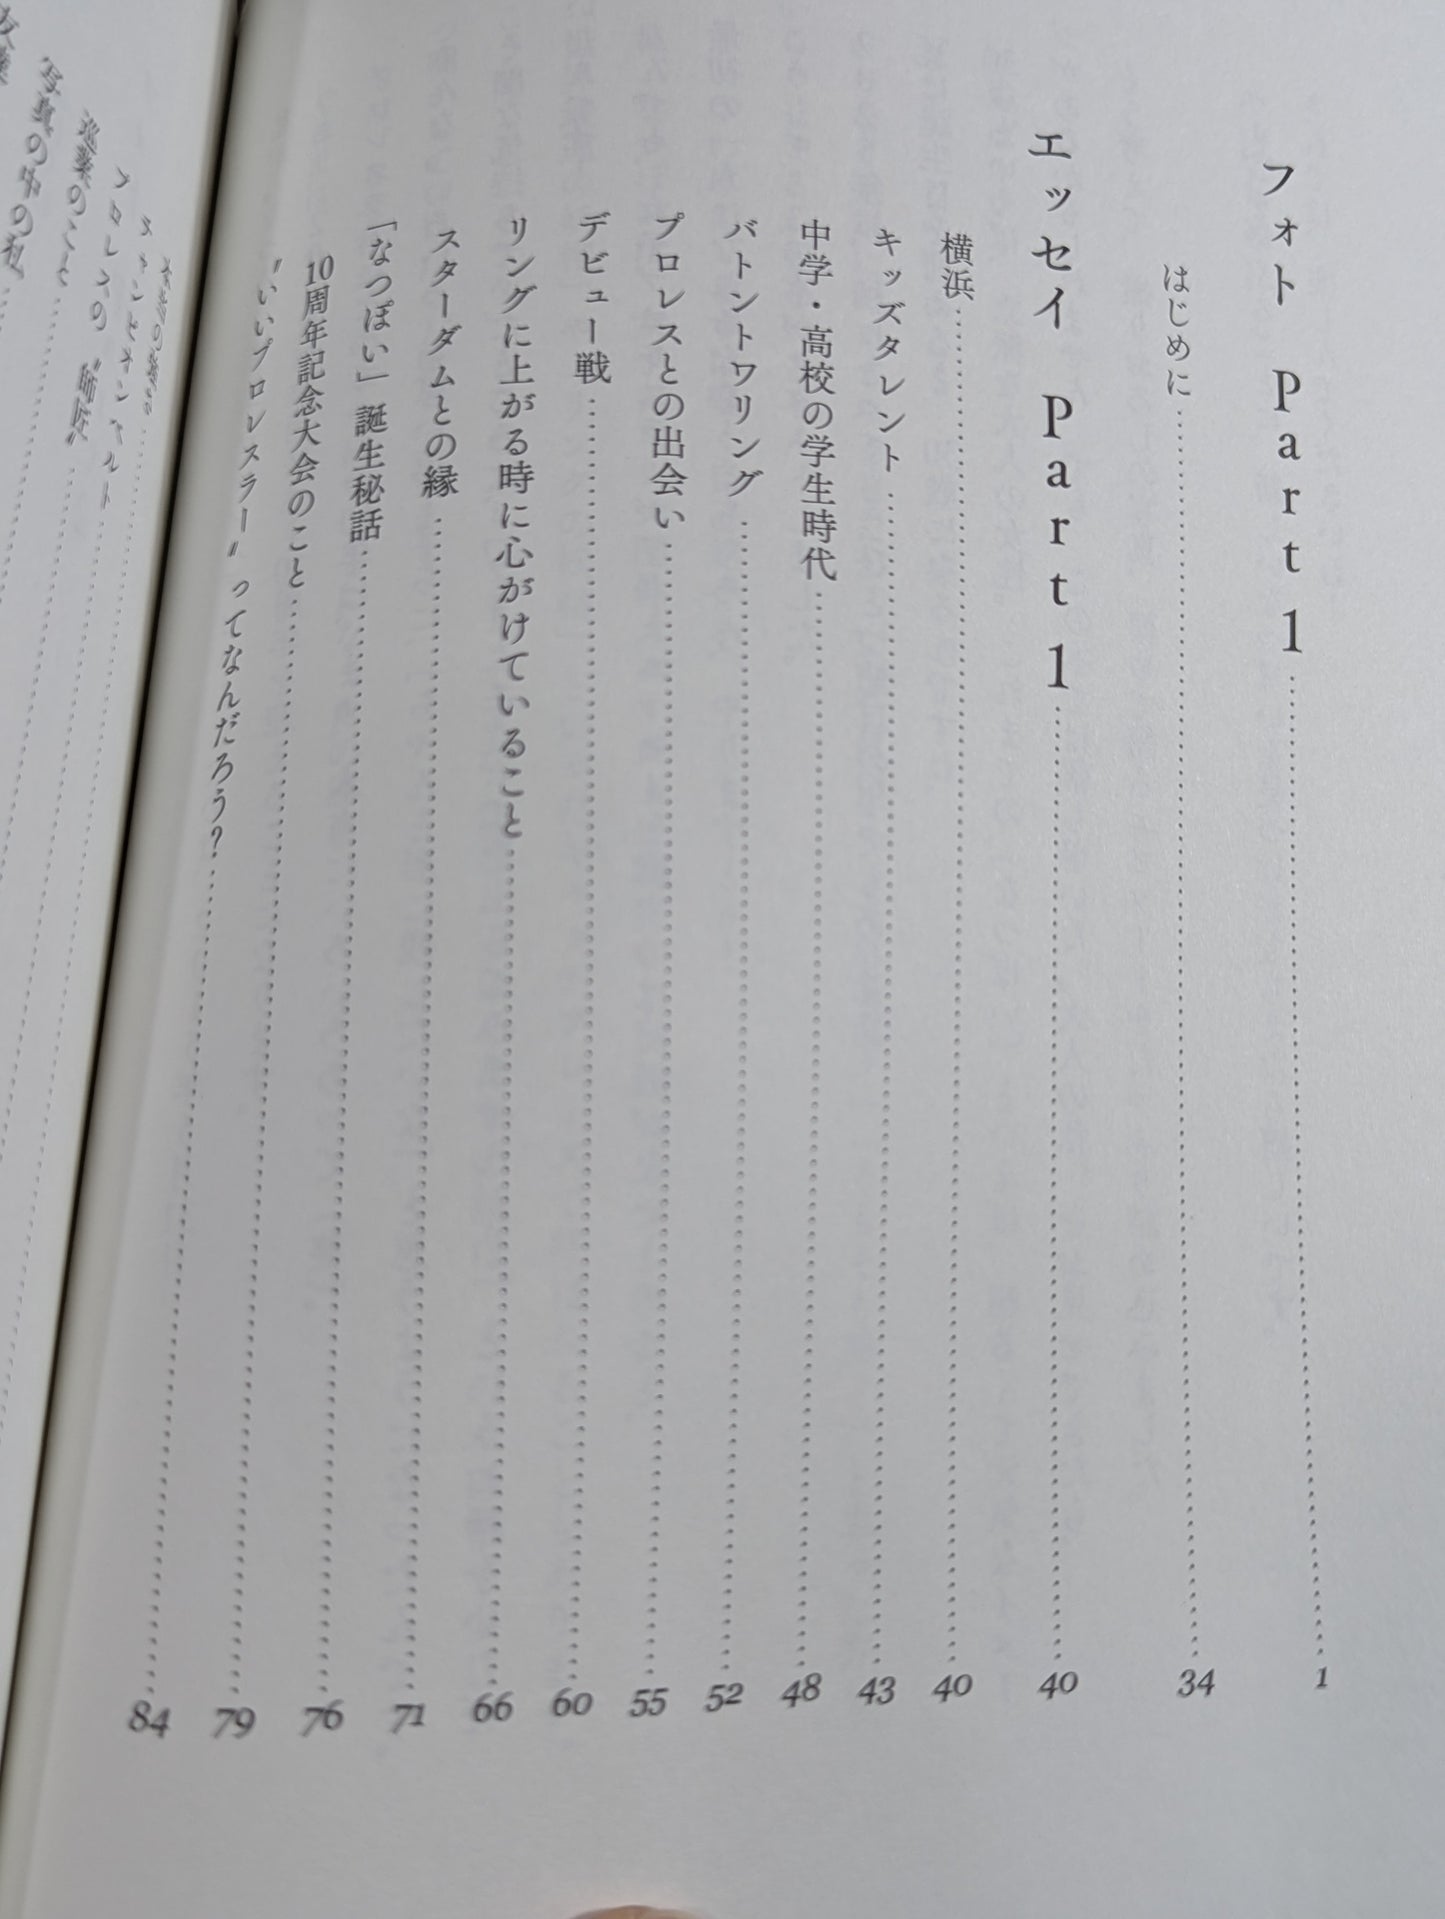 フォト Part 1 ………… 1
はじめに ………… 34
エッセイ Part 1 ………… 40
横浜 ………… 40
キッズタレント ………… 43
中学・高校の学生時代 ………… 48
バトントワリング ………… 52
プロレスとの出会い ………… 55
デビュー戦 ………… 60
リングに上がる時に心がけていること ………… 66
スターダムとの縁 ………… 71
「なつぽい」誕生秘話 ………… 76
10周年記念大会のこと ………… 79
〝いいプロレスラー〟ってなんだろう？ ………… 84
チャンピオンベルト
プロレスの〝師匠〟
巡業のこと
写真の中の私